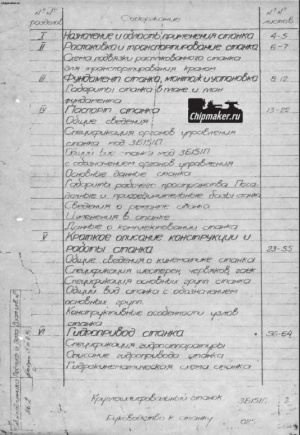 Chipmaker.ru
№№ разделов
Содержание
№№ листов
I Назначение и область применения станка 4-5
II Распаковка и транспортирование станка 6-7
Схема подвязки распакованного станка
для транспортирования краном
III Фундамент станка, монтаж и установка 8-12
Габариты станка в плане и план
фундамента
Chipmaker.ru
IV Паспорт станка
Общие сведения
Спецификация органов управления
станка мод 3Б151П
Общий вид станка мод 3Б151П
с обозначением органов управления
Основные данные станка
Габариты рабочего пространства. Поса-
дочные и присоединительные базы станка
Сведения о ремонте станка
Изменения в станке
Данные о комплектовании станка
V Краткое описание конструкции и
работы станка
Общие сведения о кинематике станка
Спецификация шестерен, червяков, гаек
Спецификация основных групп станка
Общий вид станка с обозначением
основных групп.
Конструктивные особенности узлов
станка
VI Гидропривод станка 56-64
Спецификация гидроаппаратуры
Описание гидропривода станка
Гидрокинематическая схема станка
Круглошлифовальный станок 3Б151П
Руководство к станку